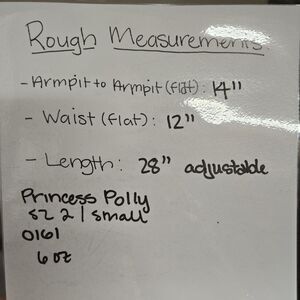 Rough Measurements
- Armpit to Armpit (flat): 14"
- Waist (flat): 12"
- Length: 28" adjustable
Princess Polly
SZ 2 / small
0161
6 oz